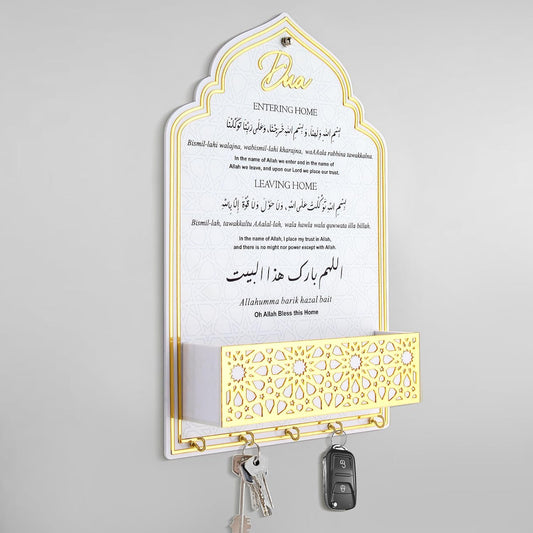 Dua
ENTERING HOME
بِسْمِ اللهِ وَلَجْنَا، وَ بِسْمِ اللهِ خَرَجْنَا، وَعَلَى رَبِّنَا تَوَكَّلْنَا
Bismil-lahi walajna, wabismil-lahi kharajna, waAAala rabbina tawakkalna.
In the name of Allah we enter and in the name of
Allah we leave, and upon our Lord we place our trust.
LEAVING HOME
بِسْمِ اللهِ تَوَكَّلْتُ عَلَى اللهِ، وَلَا حَوْلَ وَلَا قُوَّةَ إِلَّا بِاللهِ
Bismil-lah, tawakkaltu AAalal-lah, wala hawla wala quwwata illa billah.
In the name of Allah, I place my trust in Allah,
and there is no might nor power except with Allah.
اللهم بارك هذا البيت
Allahumma barik hazal bait
Oh Allah Bless this Home